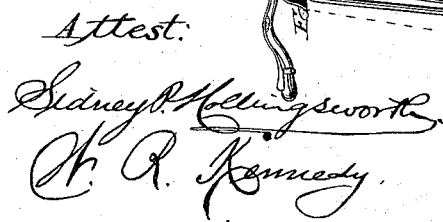 Attest:
Sidney P. Hollingsworth
W. R. Kennedy.